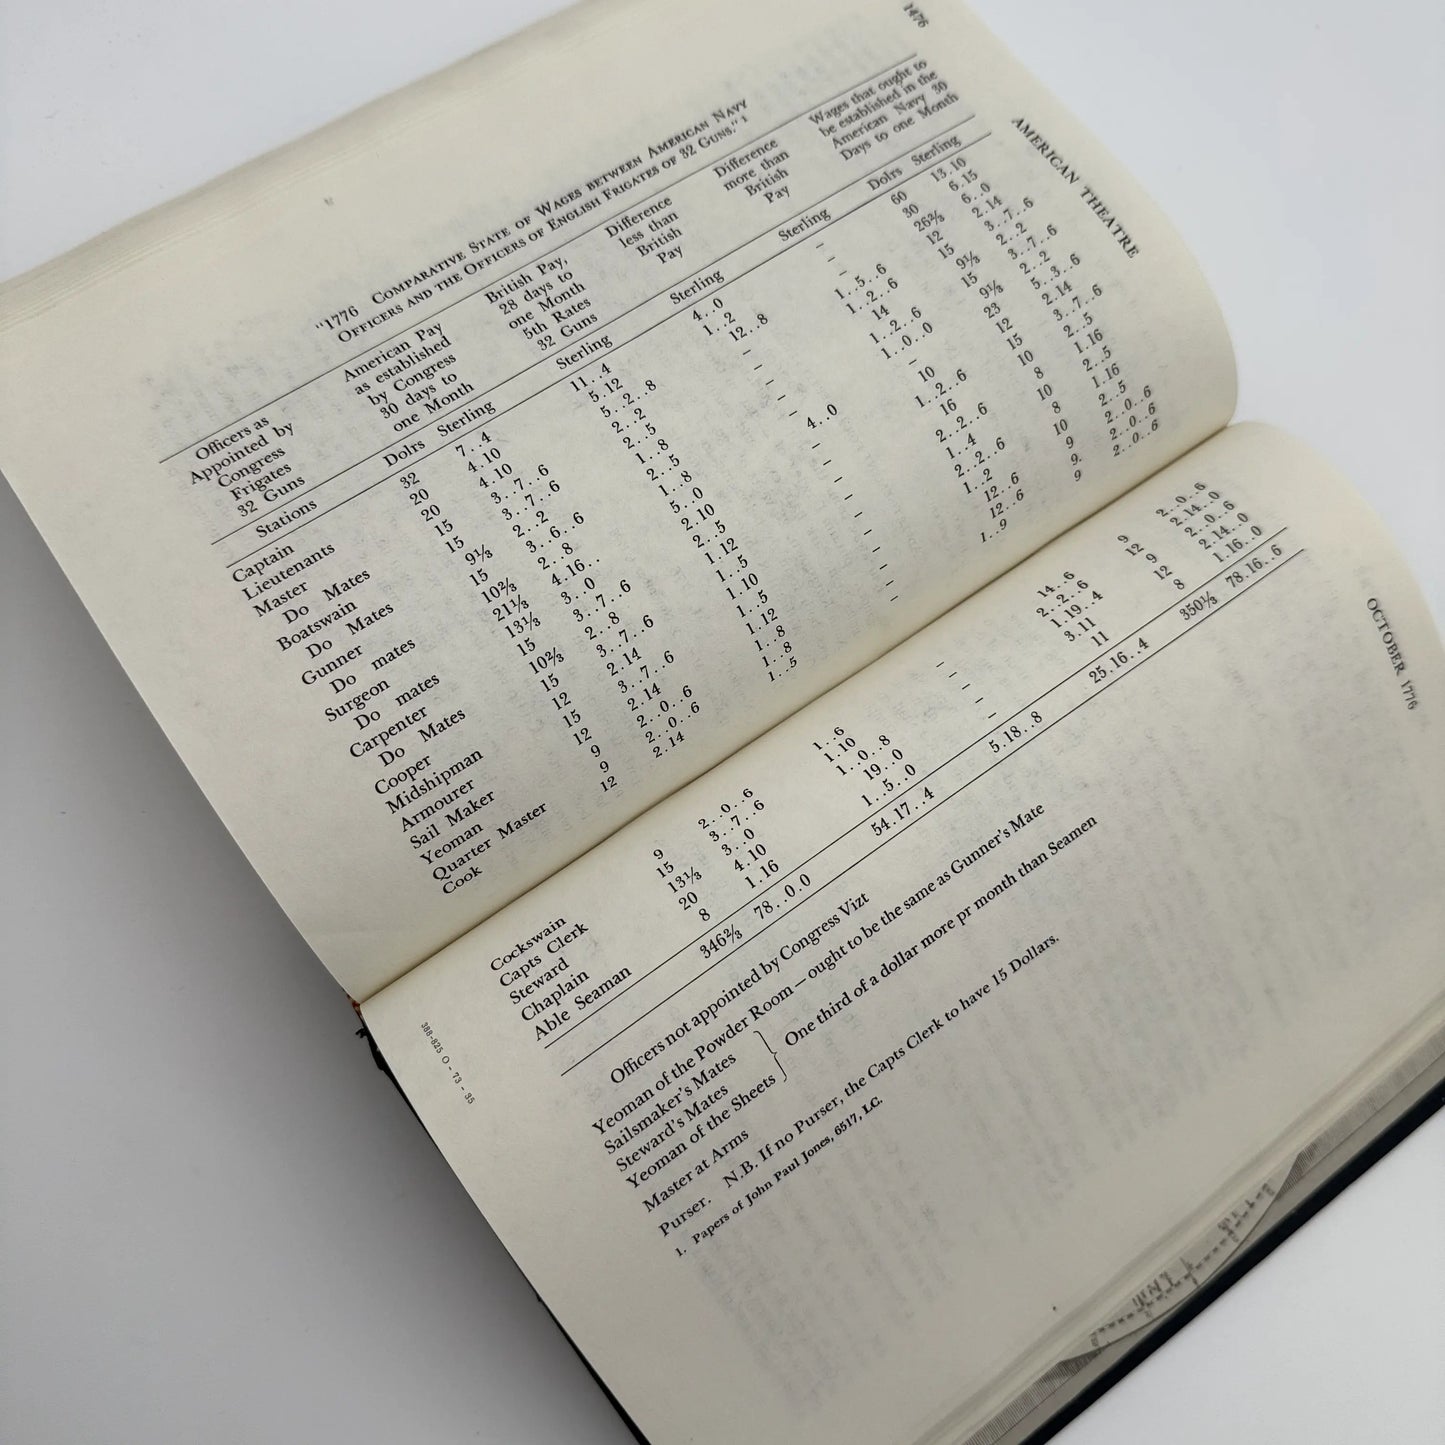 1476
AMERICAN THEATRE
"1776 COMPARATIVE STATE OF WAGES BETWEEN AMERICAN NAVY
OFFICERS AND THE OFFICERS OF ENGLISH FRIGATES OF 32 GUNS." 1
Officers as
Appointed by
Congress
Frigates
32 Guns
American Pay
as established
by Congress
30 days to
one Month
British Pay,
28 days to
one Month
5th Rates
32 Guns
Difference
less than
British
Pay
Difference
more than
British
Pay
Wages that ought to
be established in the
American Navy 30
Days to one Month
Stations Dolrs Sterling Sterling Sterling Sterling Dolrs Sterling
Captain 32 7..4 11..4 4..0 – 60 13.10
Lieutenants 20 4.10 5.12 1..2 – 30 6.15
Master 20 4.10 5..2..8 12..8 – 26⅔ 6..0
Do Mates 15 3..7..6 2..2 – 1..5..6 12 2.14
Boatswain 15 3..7..6 2..5 – 1..2..6 15 3..7..6
Do Mates 9⅓ 2..2 1..8 – 14 9⅓ 2..2
Gunner 15 3..6..6 2..5 – 1..2..6 15 3..7..6
Do mates 10⅔ 2..8 1..8 – 1..0..0 9⅓ 2..2
Surgeon 21⅓ 4.16.. 5..0 4..0 – 23 5..3..6
Do mates 13⅓ 3..0 2.10 – 10 12 2.14
Carpenter 15 3..7..6 2..5 – 1..2..6 15 3..7..6
Do Mates 10⅔ 2..8 1.12 – 16 10 2..5
Cooper 15 3..7..6 1..5 – 2..2..6 8 1.16
Midshipman 12 2.14 1.10 – 1..4 10 2..5
Armourer 15 3..7..6 1..5 – 2..2..6 8 1.16
Sail Maker 12 2.14 1.12 – 1..2 10 2..5
Yeoman 9 2..0..6 1..8 – 12..6 9 2..0..6
Quarter Master 9 2..0..6 1..8 – 12..6 9. 2..0..6
Cook 12 2.14 1..5 – 1..9 9 2..0..6
OCTOBER 1776
Cockswain 9 2..0..6 1..6 – 14..6 9 2..0..6
Capts Clerk 15 3..7..6 1.10 – 2..2..6 12 2.14..0
Steward 13⅓ 3..0 1..0..8 – 1.19..4 9 2..0..6
Chaplain 20 4.10 19..0 – 3.11 12 2.14..0
Able Seaman 8 1.16 1..5..0 – 11 8 1.16..0
346⅔ 78..0.0 54.17..4 5.18..8 25.16..4 350⅓ 78.16..6
Officers not appointed by Congress Vizt
Yeoman of the Powder Room — ought to be the same as Gunner's Mate
Sailsmaker's Mates
Steward's Mates
Yeoman of the Sheets
One third of a dollar more pr month than Seamen
Master at Arms
Purser. N.B. If no Purser, the Capts Clerk to have 15 Dollars.
1. Papers of John Paul Jones, 6517, LC.
388-825 O - 73 - 35